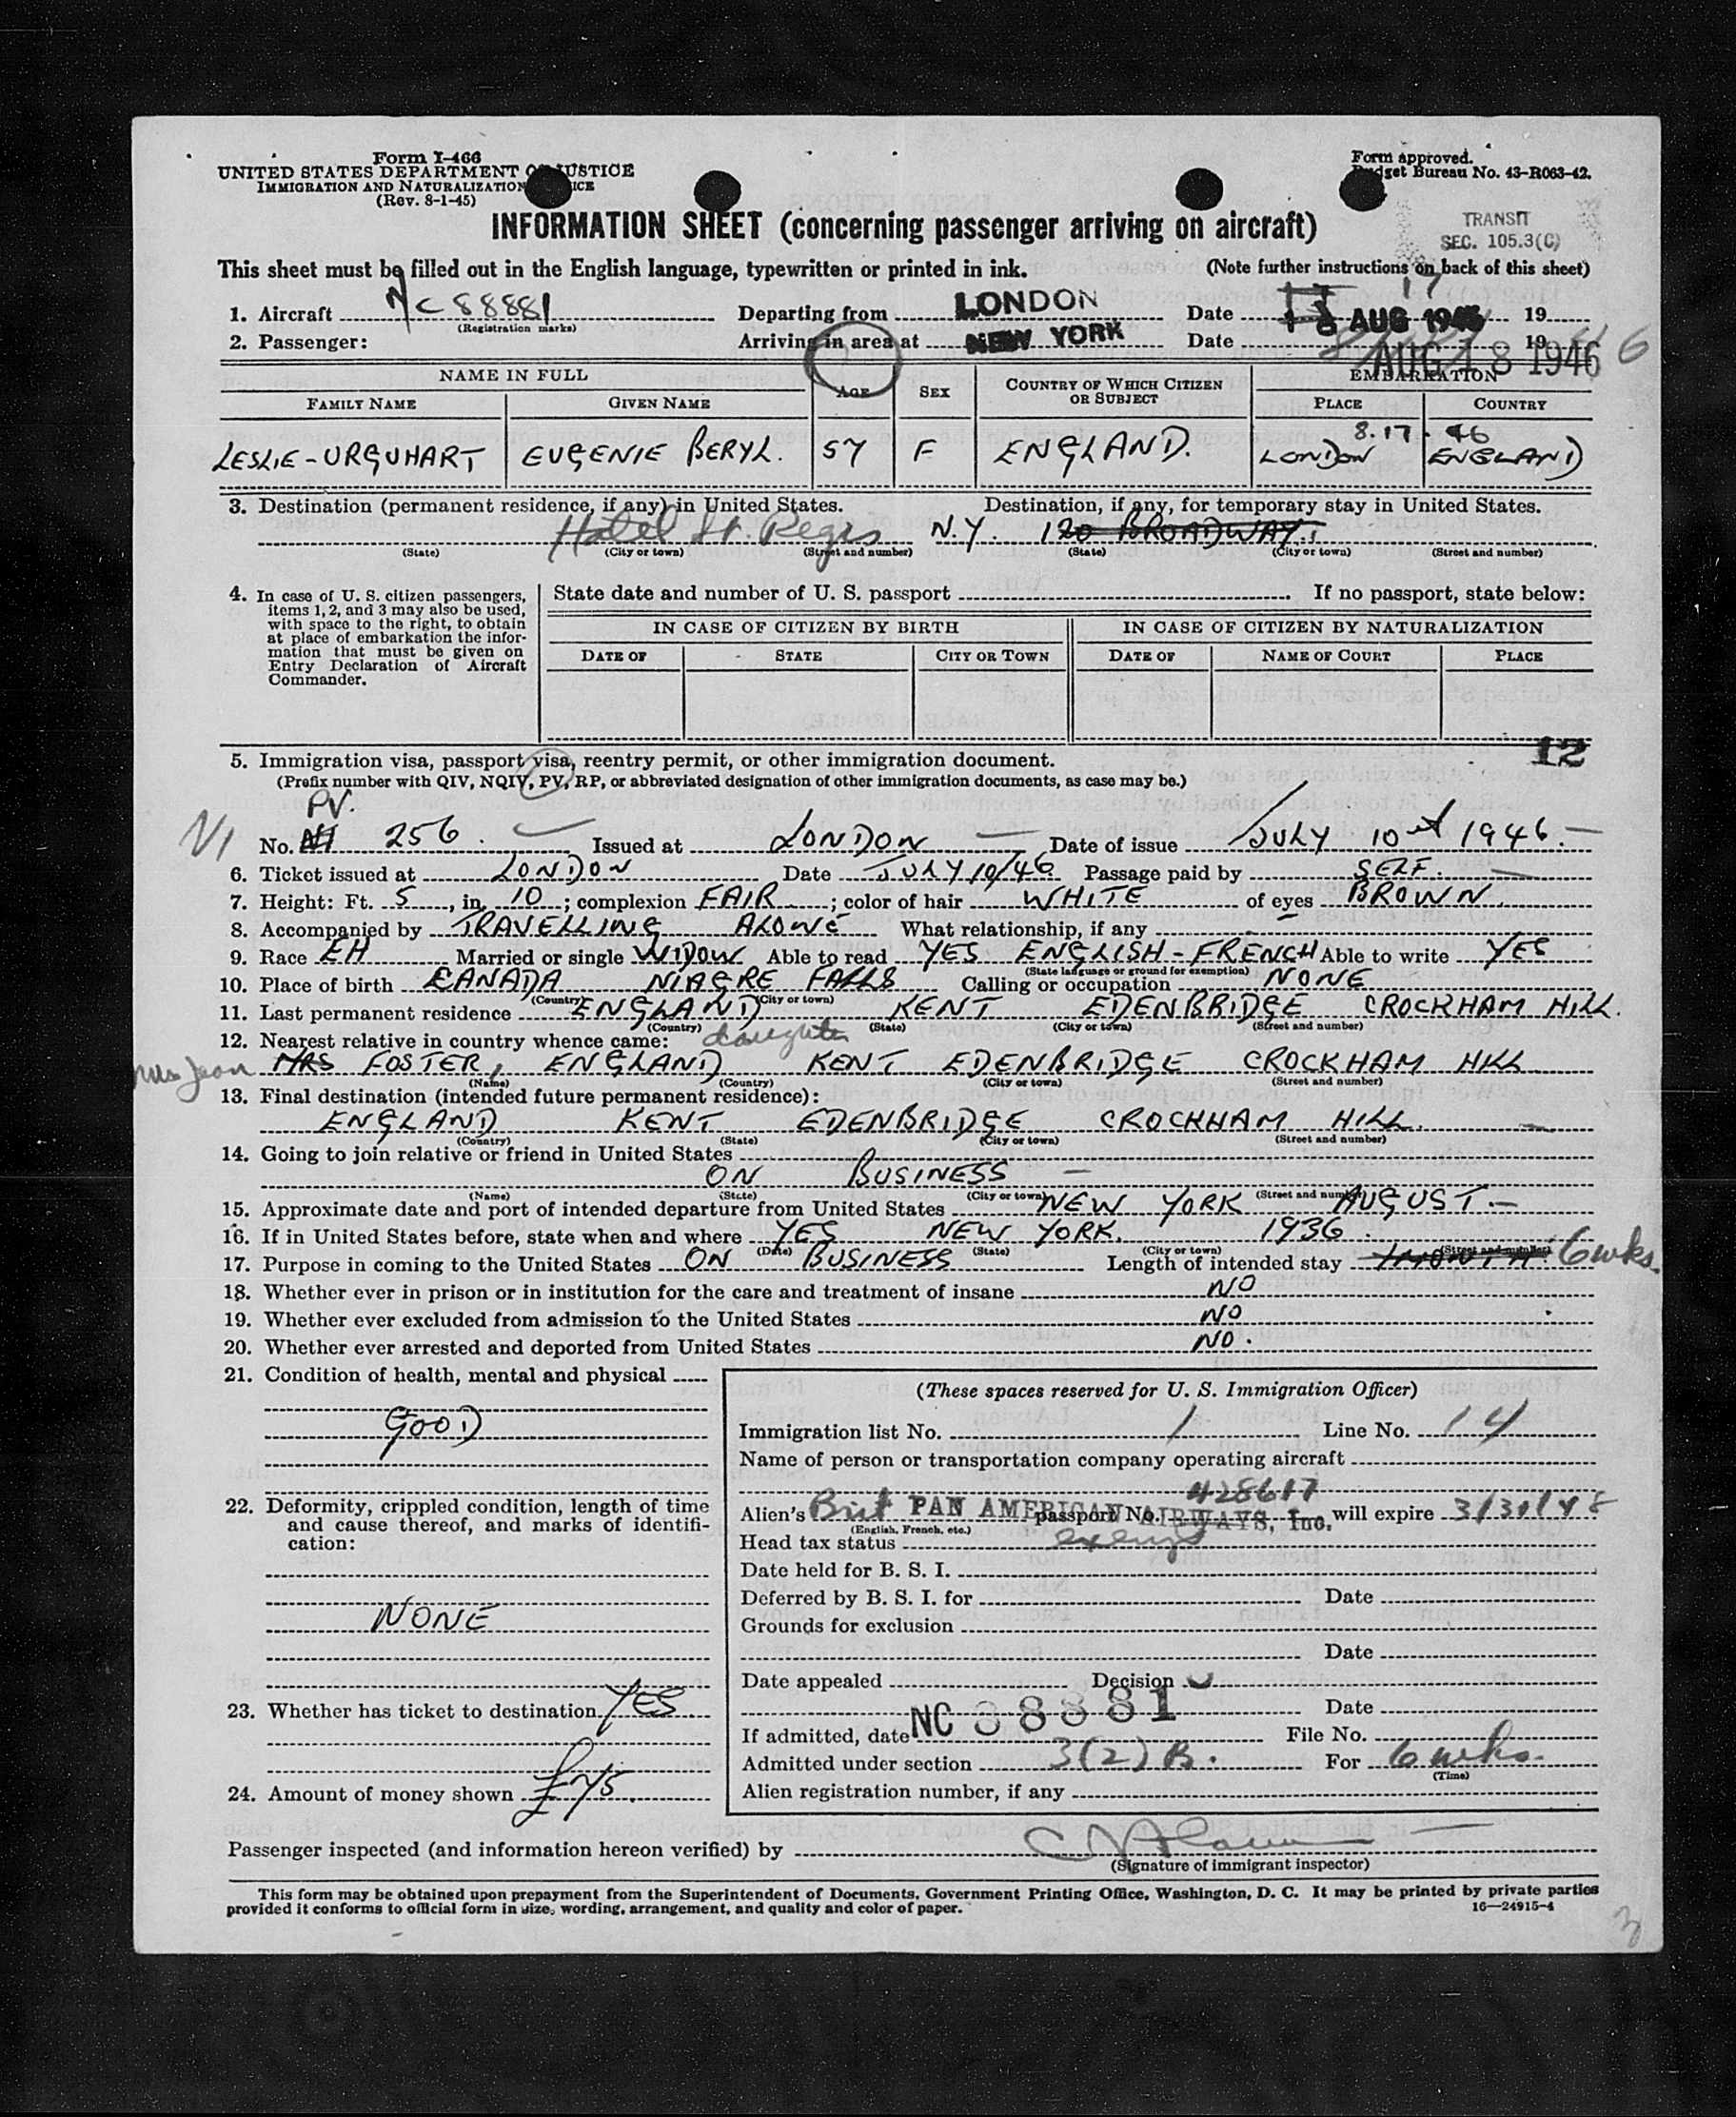 Form I-466
UNITED STATES DEPARTMENT OF JUSTICE
IMMIGRATION AND NATURALIZATION SERVICE
(Rev. 8-1-45)
Form approved.
Budget Bureau No. 43-R063-42.
INFORMATION SHEET (concerning passenger arriving on aircraft)
TRANSIT
SEC. 105.3(C)
This sheet must be filled out in the English language, typewritten or printed in ink. (Note further instructions on back of this sheet)
1. Aircraft NC 88881 Departing from LONDON Date 17 AUG 1946 19
(Registration marks)
2. Passenger: Arriving in area at NEW YORK Date AUG 18 1946 19
NAME IN FULL AGE SEX COUNTRY OF WHICH CITIZEN OR SUBJECT EMBARKATION
FAMILY NAME GIVEN NAME PLACE COUNTRY
8.17.46
LESLIE-URQUHART EUGENIE BERYL. 57 F ENGLAND. LONDON ENGLAND
3. Destination (permanent residence, if any) in United States. Destination, if any, for temporary stay in United States.
Hotel St. Regis N.Y. 120 BROADWAY.
(State) (City or town) (Street and number) (State) (City or town) (Street and number)
4. In case of U. S. citizen passengers, items 1, 2, and 3 may also be used, with space to the right, to obtain at place of embarkation the information that must be given on Entry Declaration of Aircraft Commander.
State date and number of U. S. passport If no passport, state below:
IN CASE OF CITIZEN BY BIRTH IN CASE OF CITIZEN BY NATURALIZATION
DATE OF STATE CITY OR TOWN DATE OF NAME OF COURT PLACE
12
5. Immigration visa, passport visa, reentry permit, or other immigration document.
(Prefix number with QIV, NQIV, PV, RP, or abbreviated designation of other immigration documents, as case may be.)
PV.
VI No. 256. Issued at LONDON Date of issue JULY 10 1946.
6. Ticket issued at LONDON Date JULY 10/46 Passage paid by SELF.
7. Height: Ft. 5, in. 10; complexion FAIR; color of hair WHITE of eyes BROWN.
8. Accompanied by TRAVELLING ALONE What relationship, if any
9. Race EH Married or single WIDOW Able to read YES ENGLISH-FRENCH Able to write YES
(State language or ground for exemption)
10. Place of birth CANADA NIAGRE FALLS Calling or occupation NONE
(Country) (City or town)
11. Last permanent residence ENGLAND KENT EDENBRIDGE CROCKHAM HILL.
(Country) (State) (City or town) (Street and number)
12. Nearest relative in country whence came: daughter
Mrs Jean MRS FOSTER, ENGLAND KENT EDENBRIDGE CROCKHAM HILL
(Name) (Country) (City or town) (Street and number)
13. Final destination (intended future permanent residence):
ENGLAND KENT EDENBRIDGE CROCKHAM HILL.
(Country) (State) (City or town) (Street and number)
14. Going to join relative or friend in United States
ON BUSINESS
(Name) (State) (City or town) (Street and number)
15. Approximate date and port of intended departure from United States NEW YORK AUGUST.
16. If in United States before, state when and where YES NEW YORK. 1936.
(Date) (State) (City or town) (Street and number)
17. Purpose in coming to the United States ON BUSINESS Length of intended stay 1 MONTH. 6 wks.
18. Whether ever in prison or in institution for the care and treatment of insane NO
19. Whether ever excluded from admission to the United States NO
20. Whether ever arrested and deported from United States NO.
21. Condition of health, mental and physical
GOOD
22. Deformity, crippled condition, length of time and cause thereof, and marks of identification:
NONE
23. Whether has ticket to destination YES
24. Amount of money shown £75.
(These spaces reserved for U. S. Immigration Officer)
Immigration list No. 1 Line No. 14
Name of person or transportation company operating aircraft
PAN AMERICAN AIRWAYS, Inc.
Alien's Brit passport No. 428617 will expire 3/31/48
(English, French, etc.)
Head tax status exempt
Date held for B. S. I.
Deferred by B. S. I. for Date
Grounds for exclusion
Date
Date appealed Decision
Date
NC 88881
If admitted, date File No.
Admitted under section 3(2) B. For 6 wks.
(Time)
Alien registration number, if any
Passenger inspected (and information hereon verified) by
(Signature of immigrant inspector)
This form may be obtained upon prepayment from the Superintendent of Documents, Government Printing Office, Washington, D. C. It may be printed by private parties
provided it conforms to official form in size, wording, arrangement, and quality and color of paper. 16—24915-4
3